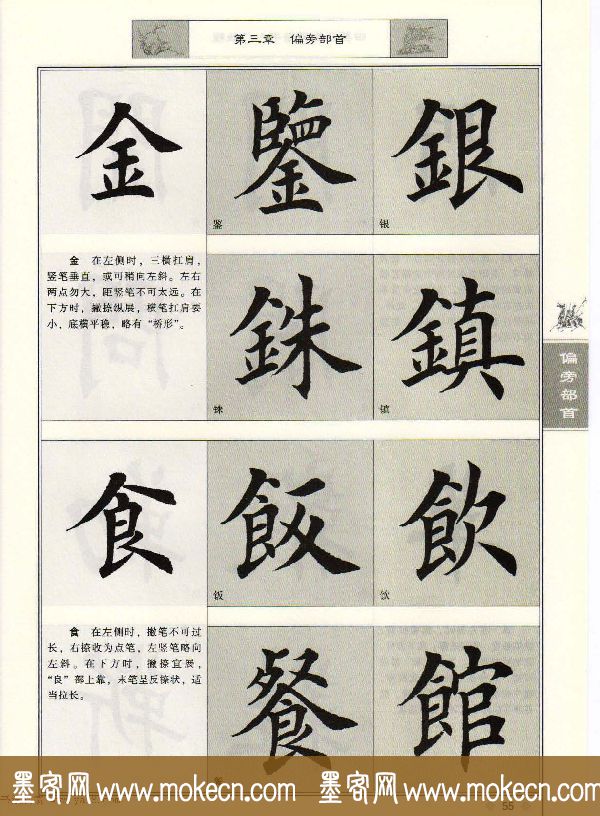 第三章 偏旁部首
金
鑒
鉴
銀
银
金 在左侧时，三横扛肩，
竖笔垂直，或可稍向左斜。左右
两点勿大，距竖笔不可太远。在
下方时，撇捺纵展，横笔扛肩要
小、底横平稳，略有“桥形”。
銖
铢
鎮
镇
偏旁部首
食
飯
饭
飲
饮
食 在左侧时，撇笔不可过
长，右捺收为点笔，左竖笔略向
左斜。在下方时，撇捺宜展，
“良”部上靠，末笔呈反捺状，适
当拉长。
餐
館
墨客网 www.mokecn.com 墨客网 www.mokecn.com
55